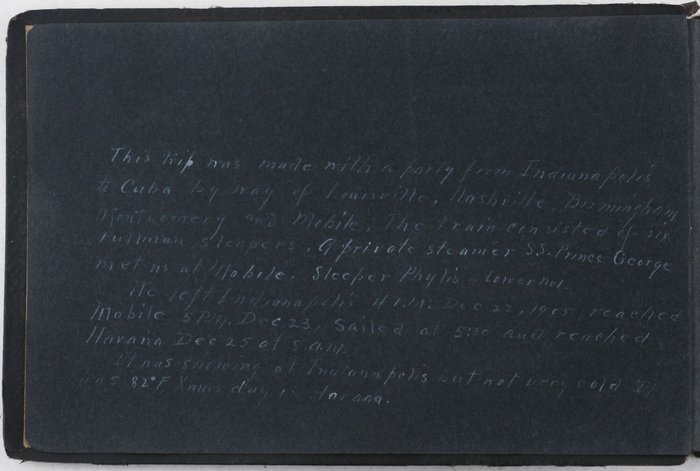 This trip was made with a party from Indianapolis
to Cuba by way of Louisville, Nashville, Birmingham
Montgomery and Mobile. The train consisted of six
Pullman Sleepers. A private steamer S.S. Prince George
met us at Mobile. Sleeper Phylis - lower
We left Indianapolis 4 P.M. Dec 22, 1905, reached
Mobile 5 P.M. Dec 23, Sailed at 530 and reached
Havana Dec 25 at 5 a.m.
It was snowing at Indianapolis but not very cold It
was 82°F Xmas day in Havana.